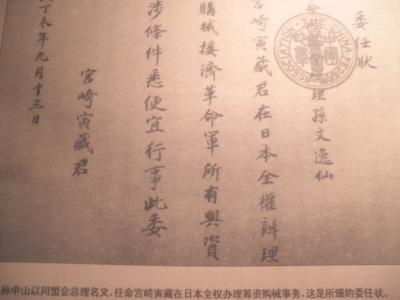 委任狀
THE CHINA FEDERAL ASSOCIATION
理孫文逸仙
宮崎寅藏君在日本全權辦理
購械接濟革命軍所有與資
涉條件悉便宜行事此委
宮崎寅藏君
丁未年九月十三日
孙中山以同盟会总理名义，任命宫崎寅藏在日本全权办理筹资购械事务，这是所颁的委任状。